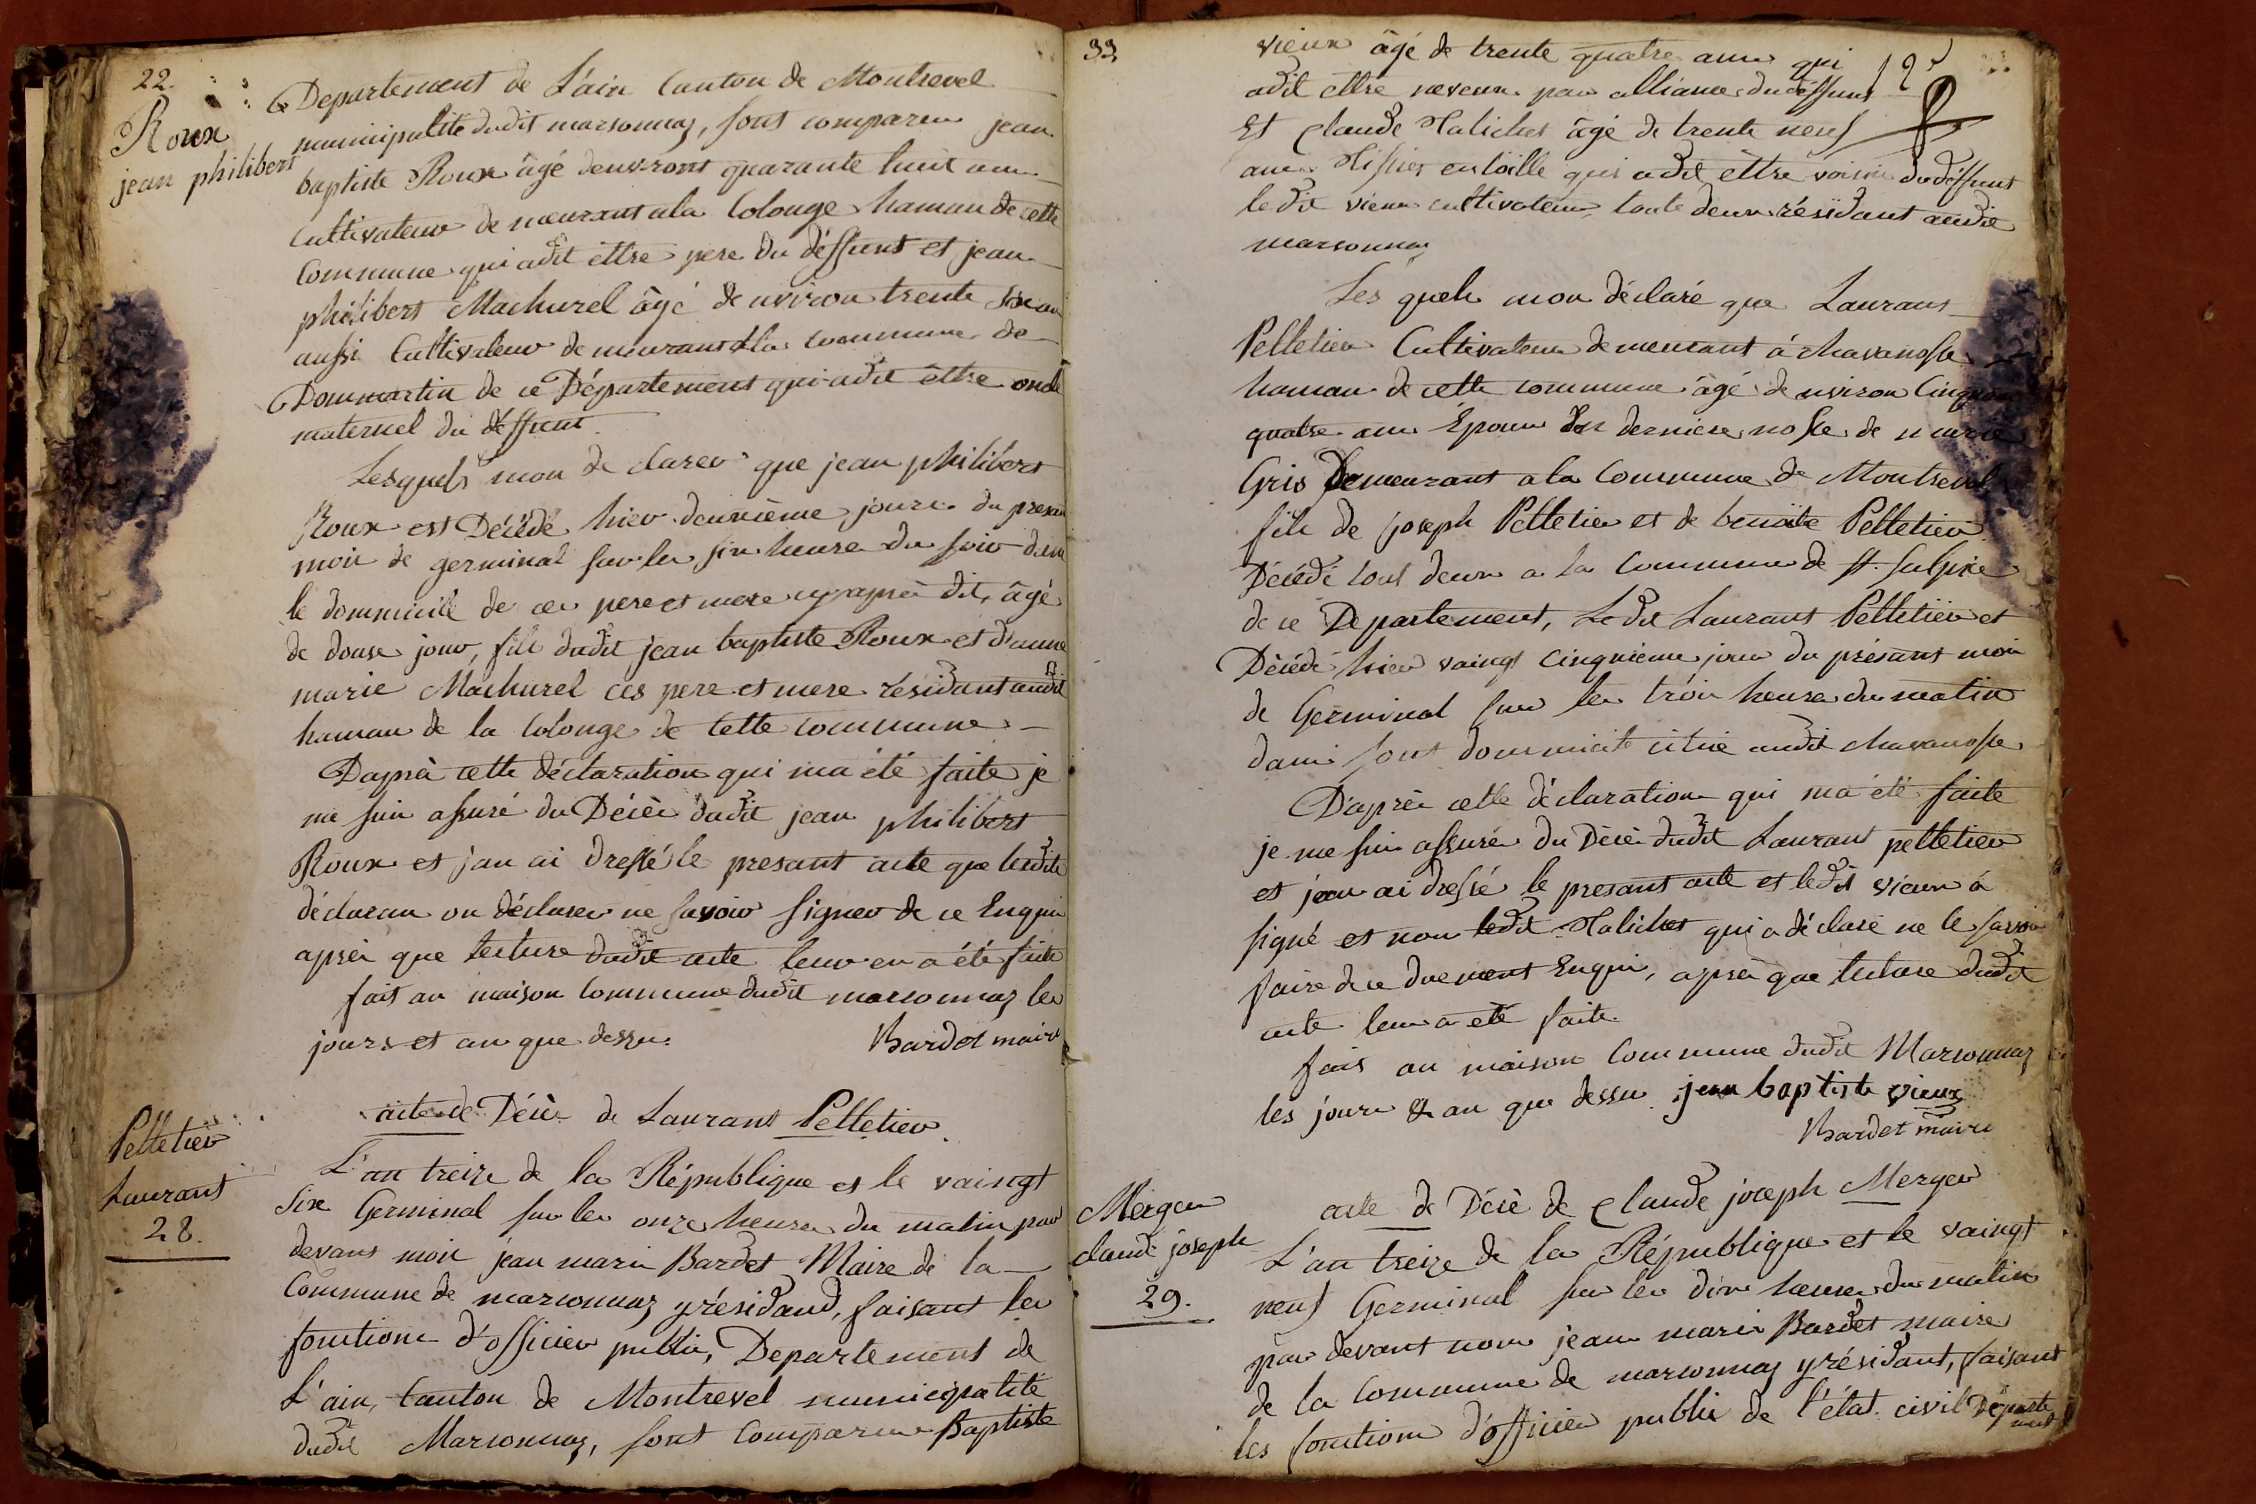 22.
Roux
jean philibert
Departement de L'ain Canton de Montrevel
municipalité dudit marsonnaz, sont comparu jean
baptiste Roux âgé denvirons quarante huit ans
Cultivateur demeurant a la Colonge hamau de cette
Commune qui adit ettre pere du déffunt et jean
philibert Machurel âgé denviron trente six an
aussi Cultivateur demeurant a la commune de
Dommartin de ce Département qui adit ettre oncle
maternel du déffunt.
Lesquels mon declarer que jean philibert
Roux est Décédé hier deuxième jour du presen
mois de germinal sur les six heure du soir dans
le dommicile de ces pere et mere cy apres dit, âgé
de douse jour, fils dudit jean baptiste Roux et danne
marie Machurel ces pere et mere résidant audit
hamau de la Colonge de cette commune
Daprès cette déclaration qui ma été faite je
me suis assuré du Décès dudit jean philibert
Roux et jan ai dressé le presant acte que lesdits
déclaran on déclarer ne savoir signer de ce Enquis
après que lecture dudit acte leur en a été faite
fait an maison Commune dudit marsonnaz les
jours et an que dessu.
Bardet maire
Pelletier
Laurant
28.
acte de Décè de Laurant Pelletier.
L'an treize de la République et le vaingt
six Germinal sur les onze heure du matin par
devant moi jean marie Bardet Maire de la
Commune de marsonnaz y résidand, faisant les
fonctions d'officier public, Departement de
L'ain, Canton de Montrevel municipalité
dudit Marsonnaz, sont Comparu Baptiste
33
12e
vieux âgé de trente quatre ans qui
adit ettre neveux par alliance du déffunt
Et Claude Talichet âgé de trente neuf
ans Tissier en toille qui a dit ettre voisin du déffunt
le dit vieux cultivateur, tout deux résidant audit
marsonnaz
Les quels mon déclaré que Laurant
Pelletier Cultivateur demeurant à chavanosse
hamau de cette commune âgé denviron Cinquan
quatre ans Époux en dernière nosse de marie
Gris Demeurant a la Commune de Montrevel
fils de joseph Pelletier et de benoite Pelletier
Décédé tout deux a la commune de St. Sulpice
de ce Departement, Ledit Laurant Pelletier et
Décédé hier vaingt cinquieme jour du présant mois
de Germinal sur les trois heure du matin
dans sont dommicile citué audit chavanosse
D'après cette déclaration qui ma été faite
je me suis assuré du Décè dudit Laurant pelletier
et jean ai dressé le presant acte et ledit vieux à
signé et non ledit Talichet qui a déclaré ne le savoir
faire de ce duement Enquis, après que lecture dudit
acte leur a eté faite.
fait an maison Commune dudit Marsonnaz
les jours & an que dessu. jean baptiste vieux
Bardet maire
Merger
claude joseph
29.
acte de Décè de Claude joseph Merger
L'an treize de la République et le vaingt
neuf Germinal sur les dix heures du matin
par devant nous jean marie Bardet maire
de la Commune de marsonnaz y résidant, faisant
les fonctions d'officier public de l'état civil Départe
ment